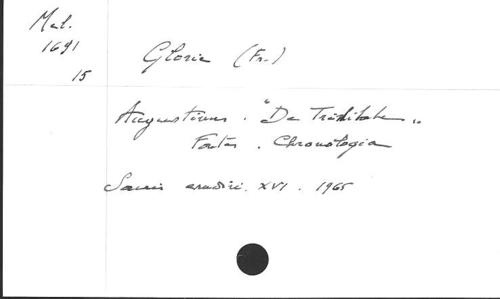 Mel.
1691
15
Glorie (Fr.)
Augustinus. "De Trinitate„
Fontes. Chronologia
Sacris erudiri. XVI. 1965